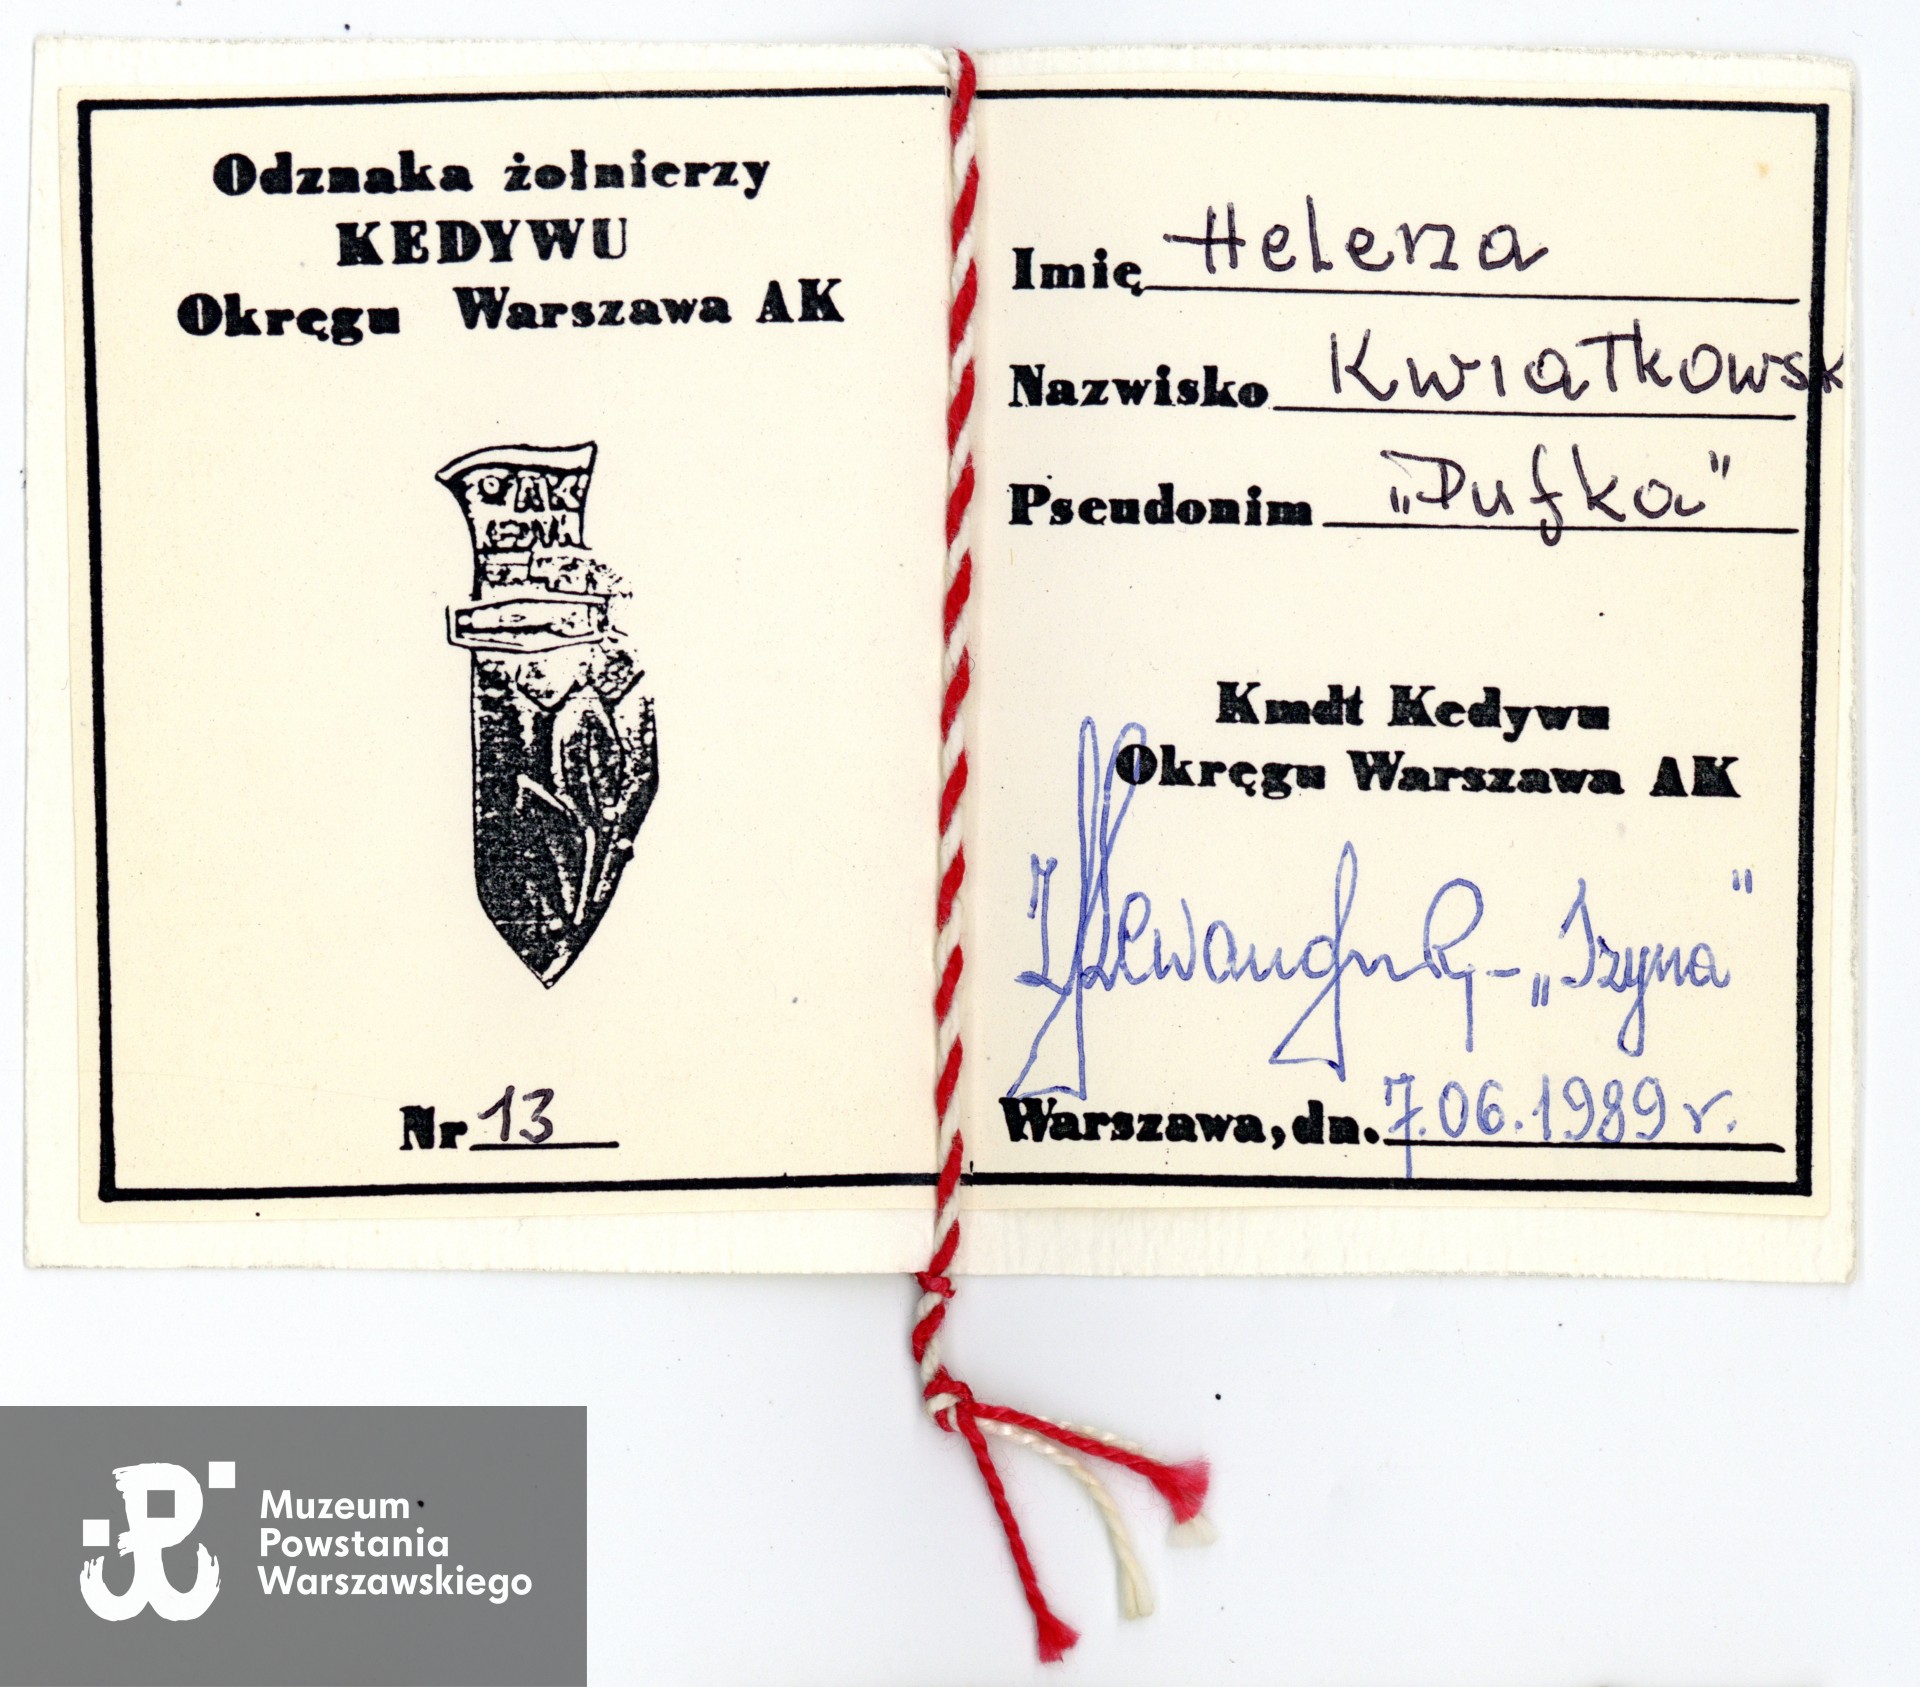 Odznaka żołnierzy
KEDYWU
Okręgu Warszawa AK
AK
Nr 13
Imię Helena
Nazwisko Kwiatkowsk
Pseudonim „Dufka"
Kmdt Kedywu
Okręgu Warszawa AK
- „Iżyna"
Warszawa, dn. 7.06.1989 r.
Muzeum
Powstania
Warszawskiego